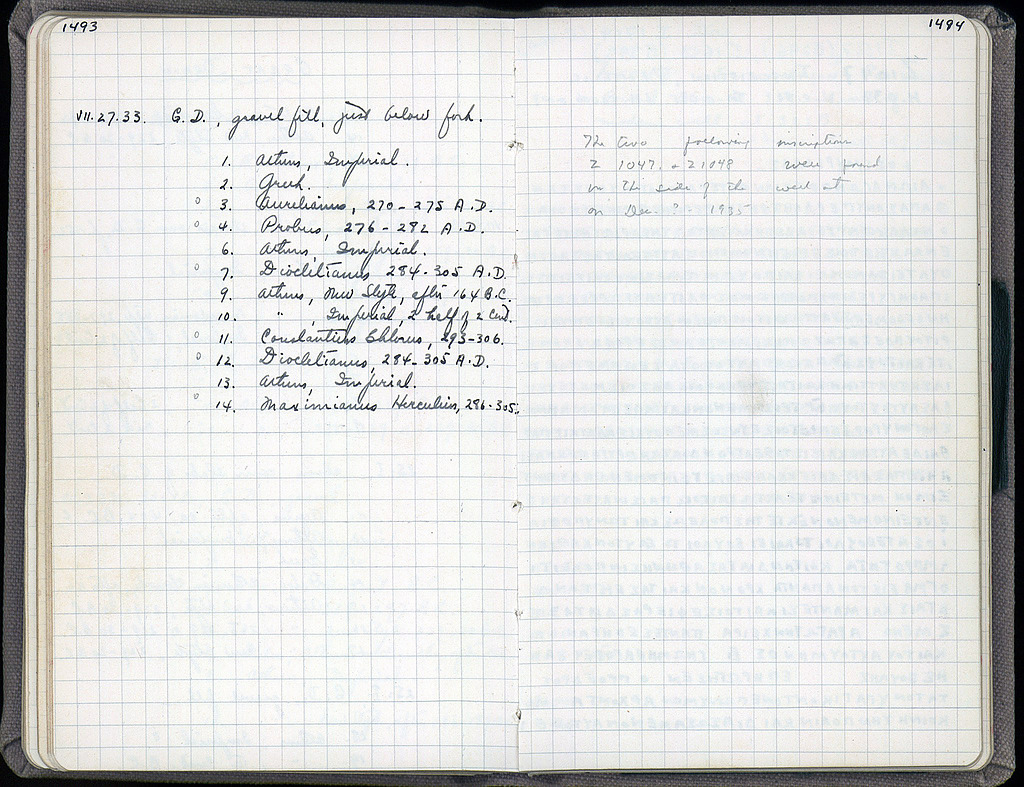 1493
VII.27.33. G.D., gravel fill, just below fork.
1. Athens, Imperial.
2. Greek.
° 3. Aurelianus, 270-275 A.D.
° 4. Probus, 276-282 A.D.
6. Athens, Imperial.
° 7. Diocletianus 284-305 A.D.
9. Athens, New Style, after 164 B.C.
10. " , Imperial, 2 half of 2 Cent.
° 11. Constantius Chlorus, 293-306.
° 12. Diocletianus, 284-305 A.D.
13. Athens, Imperial.
° 14. Maximianus Herculius, 286-305.
1494
The two following inscriptions
Σ 1047. & Σ 1048 were found
in the side of the well at
on Dec. ? - 1935